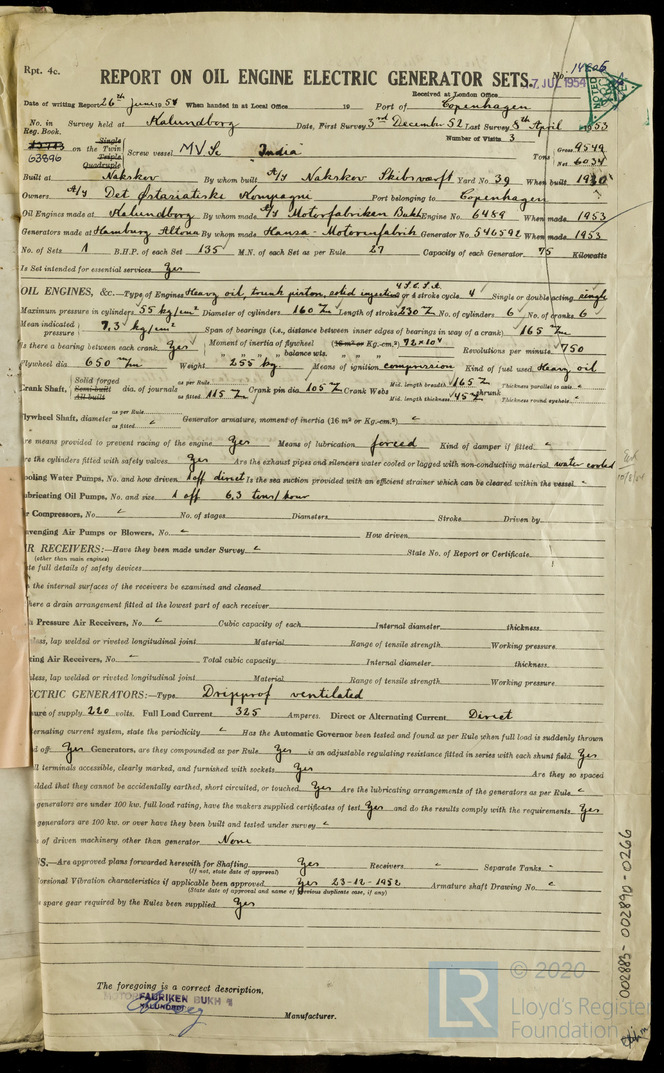 Rpt. 4c.
REPORT ON OIL ENGINE ELECTRIC GENERATOR SETS.
No. 14606
7 JUL 1954
Received at London Office
Date of writing Report 26th June 1954 When handed in at Local Office 19 Port of Copenhagen
No. in Reg. Book. Survey held at Kalundborg Date, First Survey 3rd December 52 Last Survey 8th April 1953
Number of Visits 3
63896 on the Single Twin Triple Quadruple Screw vessel MV Sc India Tons Gross 9549 Net 6034
Built at Nakskov By whom built A/S Nakskov Skibsværft Yard No. 39 When built 1930
Owners A/S Det Østasiatiske Kompagni Port belonging to Copenhagen
Oil Engines made at Kalundborg By whom made A/S Motorfabriken Bukh Engine No. 6489 When made 1953
Generators made at Hamburg Altona By whom made Hansa-Motorenfabrik Generator No. 546592 When made 1953
No. of Sets 1 B.H.P. of each Set 135 M.N. of each Set as per Rule 27 Capacity of each Generator 75 Kilowatts
Is Set intended for essential services Yes
OIL ENGINES, &c.—Type of Engines Heavy oil, trunk piston, solid injection 4 S.C.S.A. 2 or 4 stroke cycle 4 Single or double acting single
Maximum pressure in cylinders 55 kg/cm² Diameter of cylinders 160 m/m Length of stroke 230 m/m No. of cylinders 6 No. of cranks 6
Mean indicated pressure 7,3 kg/cm² Span of bearings (i.e., distance between inner edges of bearings in way of a crank) 165 m/m
Is there a bearing between each crank Yes Moment of inertia of flywheel (16 m² or Kg.-cm.²) 72×10⁴ Revolutions per minute 750
" " " balance wts. " " "
Flywheel dia. 650 m/m Weight 255 kg Means of ignition compression Kind of fuel used Heavy oil
Crank Shaft, Solid forged Semi built All built dia. of journals as per Rule as fitted 115 m/m Crank pin dia 105 m/m Crank Webs Mid. length breadth 165 m/m Mid. length thickness 45 m/m shrunk Thickness parallel to axis Thickness round eyehole
Flywheel Shaft, diameter as per Rule as fitted Generator armature, moment of inertia (16 m² or Kg.-cm.²)
are means provided to prevent racing of the engine Yes Means of lubrication forced Kind of damper if fitted
re the cylinders fitted with safety valves Yes Are the exhaust pipes and silencers water cooled or lagged with non-conducting material water cooled
ooling Water Pumps, No. and how driven 1 off direct Is the sea suction provided with an efficient strainer which can be cleared within the vessel
ubricating Oil Pumps, No. and size 1 off 6,3 tons/hour
ir Compressors, No. No. of stages Diameters Stroke Driven by
cavenging Air Pumps or Blowers, No. How driven
IR RECEIVERS:—Have they been made under Survey State No. of Report or Certificate
(other than main engines)
ate full details of safety devices
n the internal surfaces of the receivers be examined and cleaned
there a drain arrangement fitted at the lowest part of each receiver
h Pressure Air Receivers, No. Cubic capacity of each Internal diameter thickness
mless, lap welded or riveted longitudinal joint Material Range of tensile strength Working pressure
ting Air Receivers, No. Total cubic capacity Internal diameter thickness
mless, lap welded or riveted longitudinal joint Material Range of tensile strength Working pressure
ECTRIC GENERATORS:—Type Dripproof ventilated
sure of supply 220 volts. Full Load Current 325 Amperes. Direct or Alternating Current Direct
ternating current system, state the periodicity Has the Automatic Governor been tested and found as per Rule when full load is suddenly thrown
d off Yes Generators, are they compounded as per Rule Yes is an adjustable regulating resistance fitted in series with each shunt field Yes
ll terminals accessible, clearly marked, and furnished with sockets Yes Are they so spaced
ielded that they cannot be accidentally earthed, short circuited, or touched Yes Are the lubricating arrangements of the generators as per Rule
generators are under 100 kw. full load rating, have the makers supplied certificates of test Yes and do the results comply with the requirements Yes
generators are 100 kw. or over have they been built and tested under survey
s of driven machinery other than generator None
NS.—Are approved plans forwarded herewith for Shafting Yes Receivers Separate Tanks
(If not, state date of approval)
Torsional Vibration characteristics if applicable been approved Yes 23-12-1952 Armature shaft Drawing No.
(State date of approval and name of previous duplicate case, if any)
e spare gear required by the Rules been supplied Yes
The foregoing is a correct description,
MOTORFABRIKEN BUKH
KALUNDBORG
Manufacturer.
002883-002890-0266
LR © 2020
Lloyd's Register
Foundation